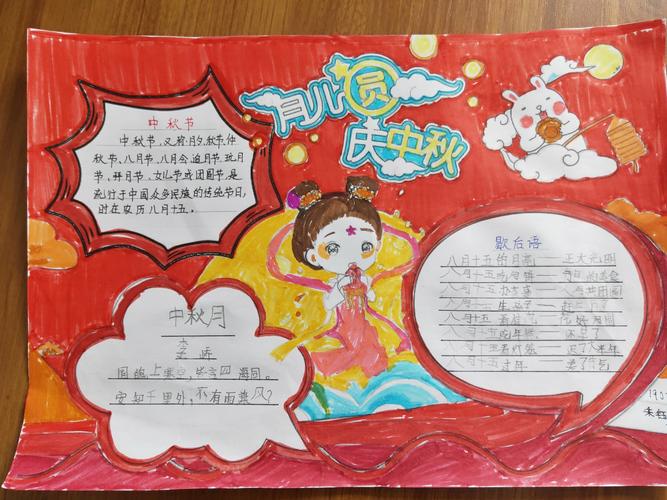 月儿圆
庆中秋
中秋节
中秋节、又称月夕、秋节、仲
秋节、八月节、八月会、追月节、玩月
节、拜月节、女儿节或团圆节,是
流行于中国众多民族的传统节日,
时在农历八月十五。
中秋月
李峤
圆魄上寒空,皆言四海同。
安知千里外,不有雨兼风?
歇后语
八月十五的月亮——正大光明
八月十五吃月饼——
八月十五
八月十五生孩子——赶巧了
八月十五看桂花——花好月圆
八月十五吃年糕——还早了
八月十五看灯笼——迟了大半年
八月十五过年——差了节气
190
朱